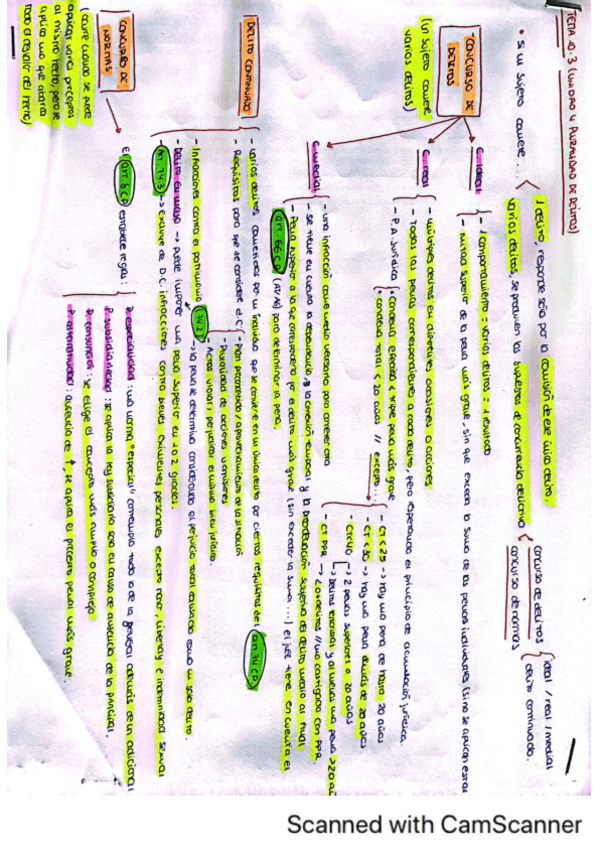 TEMA 10.3 (UNIDAD Y PLURALIDAD DE DELITOS)
• Si un sujeto comete...
1 delito, responde sólo por la comisión de ese único delito.
varios delitos, se producen los supuestos de concurrencia delictiva
concurso de delitos
ideal / real / medial
delito continuado.
concurso de normas
CONCURSO DE DELITOS
(un sujeto comete varios delitos)
C. Ideal
- 1 comportamiento = varios delitos = 1 resultado
- mitad superior de la pena más grave, sin que exceda la suma de las penas individuales (sino se aplican estas
C. Real
- múltiples delitos en diferentes ocasiones o acciones
- Todas las penas correspondientes a cada delito, pero respetando el principio de acumulación jurídica.
- P.A. Jurídica
• condena escala < triple pena más grave
• condena total < 20 años // excepto...
- CT < 25 → hay una pena de hasta 20 años
- CT < 30 → hay una pena de más de 20 años
- CT < 40 → 2 penas superiores a 20 años
- CT PPR → 2 o + delitos // uno castigado con PPR.
C. medial
- una infracción como medio necesario para cometer otra
- pena superior a la que correspondería por el delito más grave (sin exceder la suma ...) el juez tiene en cuenta el
art. 66 CP
para determinar la pena.
DELITO CONTINUADO
- varios delitos cometidos por un individuo que se convierte en un único delito por ciertos requisitos del art. 74 CP
- Requisitos para que se considere d.C.
- Plan premeditado o aprovechamiento de la situación
- Pluralidad de acciones u omisiones
- Infracciones contra el patrimonio (74.2) → la pena se determina considerando el perjuicio total causado como un solo delito.
- Delito en masa → puede imponer una pena superior en 1 o 2 grados.
- Art. 74.3 → excluye de D.C. infracciones contra bienes eminentemente personales excepto honor, libertad e indemnidad sexual
CONCURSO DE NORMAS
(ocurre cuando se puede
aplicar varios preceptos
al mismo hecho, pero se
aplica uno que abarca
todo el desvalor del hecho)
El art. 8 CP establece reglas:
P. especialidad: una norma "especial" contempla todo lo de la general además de un adicional
P. subsidiariedad: se aplica la ley subsidiaria solo en caso de ausencia de la principal.
P. consunción: se elige el concepto más amplio o complejo
P. alternatividad: ausencia de ↑, se aplica el precepto penal más grave.
Scanned with CamScanner